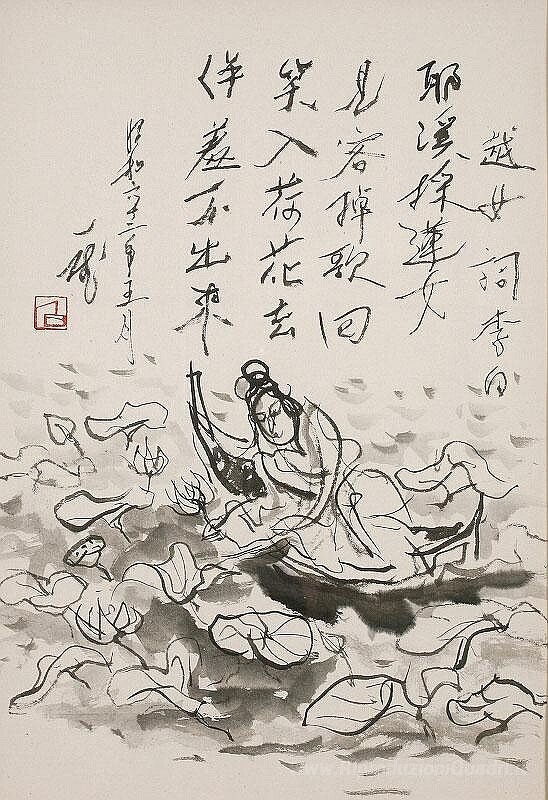 越女詞 李白
耶溪採蓮女
見客掉歌回
笑入荷花去
佯羞不出来
昭和六十二年五月